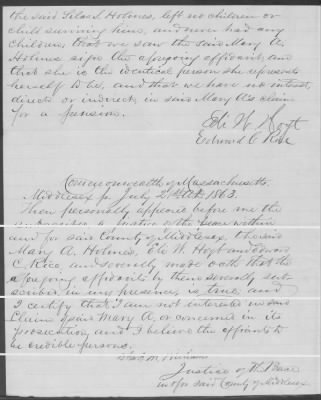 the said Silas S. Holmes, left no children or
child surviving him, and never had any
children, that we saw the said Mary A.
Holmes sign the aforgoing affidavit, and
that she is the identical person she represents
herself to be, and that we have no interest,
direct or indirect, in said Mary A's claim
for a Pension.
Eli W. Hoyt
Edward C. Rice
Commonwealth of Massachusetts.
Middlesex ss July 21st A.D. 1863.
Then personally appeared before me the
a Justice of the peace within
and for said County of Middlesex, the said
Mary A. Holmes, Eli W. Hoyt and Edward
C. Rice, and severally made oath that the
aforegoing affidavits by them severally sub
scribed in my presence, is true, and
I certify that I am not interested in said
claim of said Mary A. or concerned in its
prosecution, and I believe the affiants to
be credible persons.
Justice of the Peace
in & for said County of Middlesex